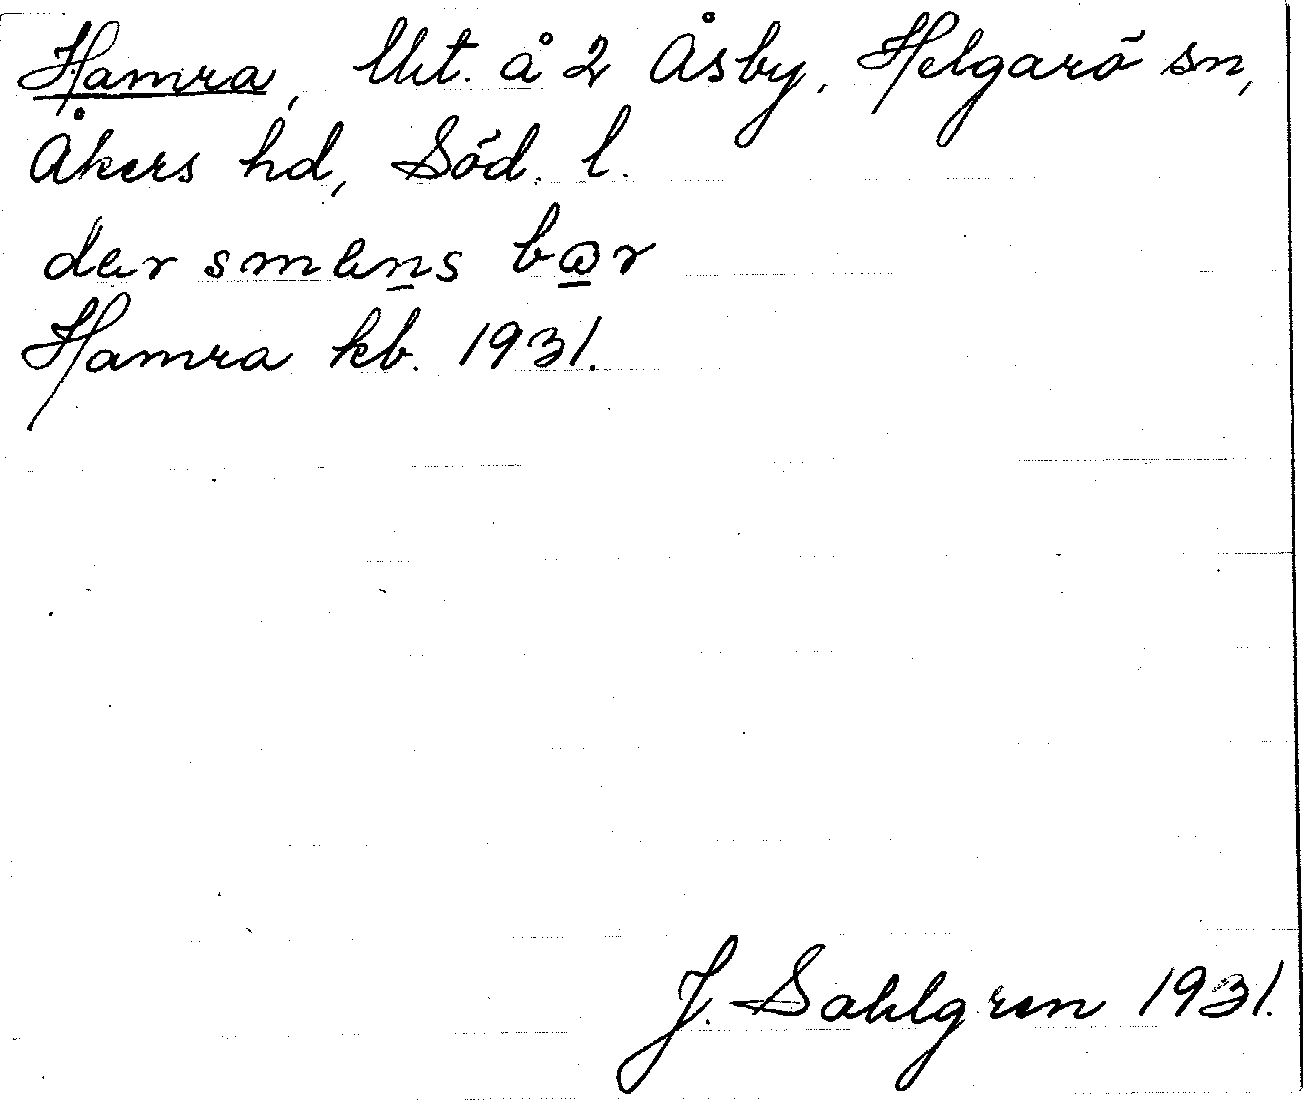 Hamra, Utt. å 2 Åsby, Helgarö sn,
Åkers hd, Söd. l.
dær smens bær
Hamra kb. 1931.
J. Sahlgren 1931.